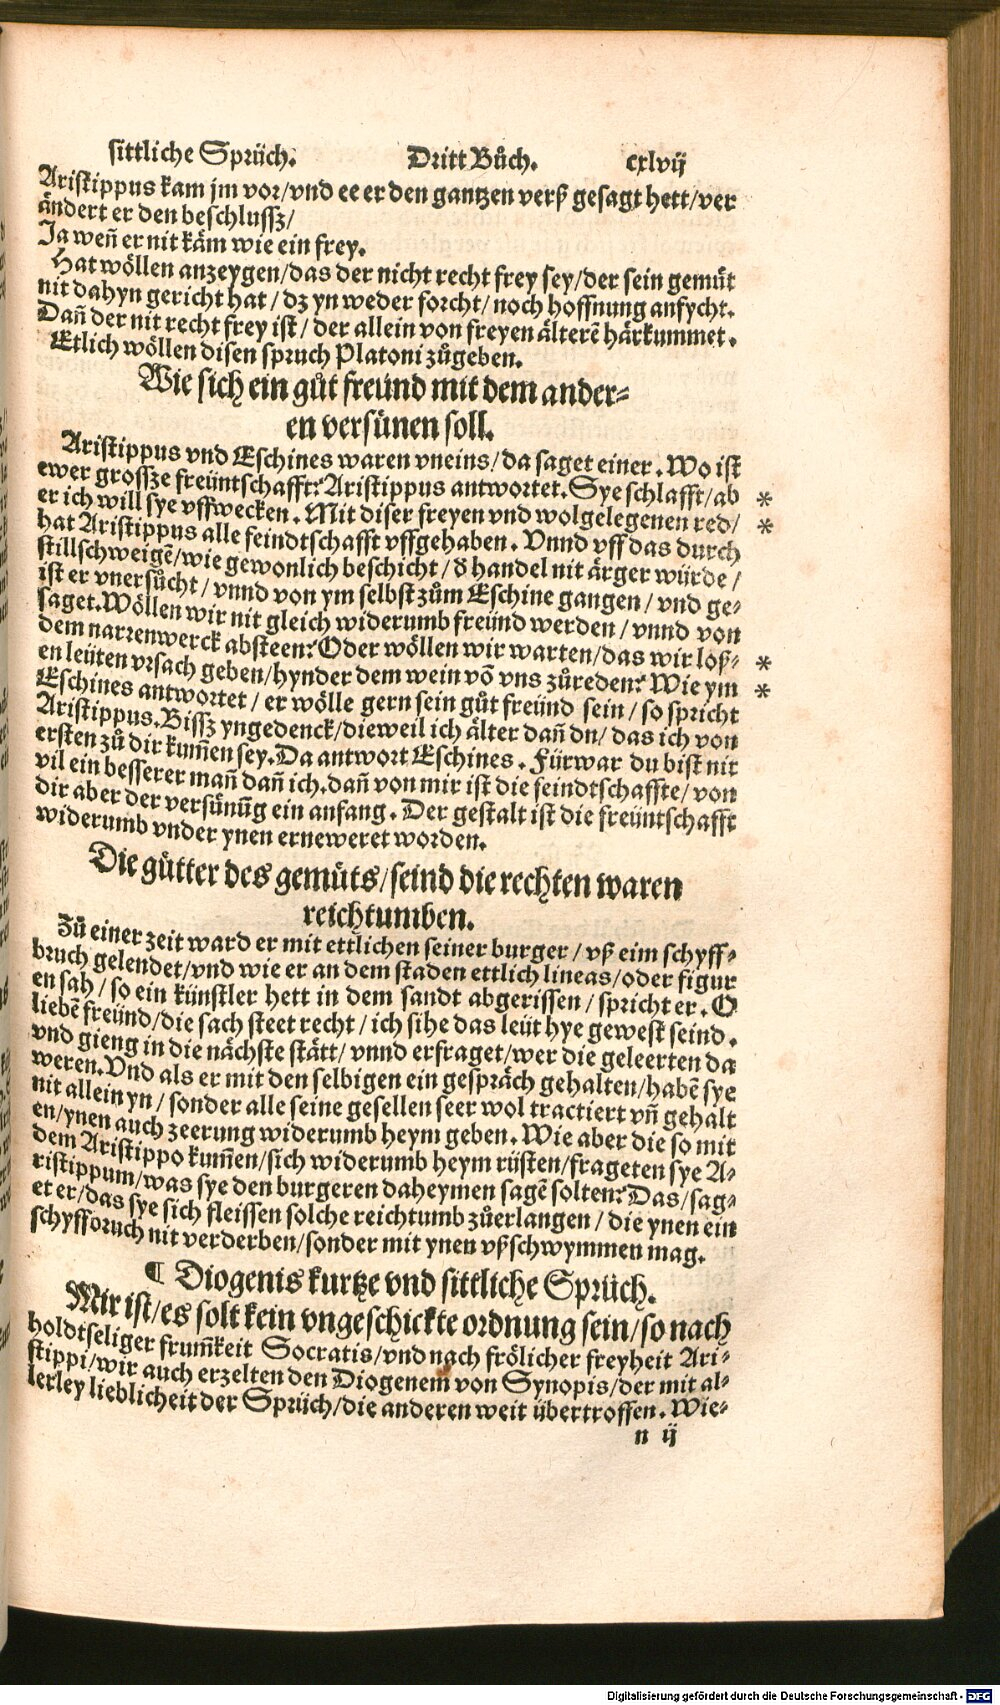 sittliche Sprüch. Dritt Bůch. cxlvij
Aristippus kam jm vor/vnd ee er den gantzen verß gesagt hett/ver
ändert er den beschlussz/
Ja weñ er nit käm wie ein frey.
Hat wöllen anzeygen/das der nicht recht frey sey/der sein gemüt
nit dahyn gericht hat/dz yn weder forcht/noch hoffnung anfycht.
Dañ der nit recht frey ist/der allein von freyen älterẽ härkummet.
Etlich wöllen disen spruch Platoni zůgeben.
Wie sich ein gůt freünd mit dem ander-
en versünen soll.
Aristippus vnd Eschines waren vneins/da saget einer. Wo ist
ewer grossze freüntschafft? Aristippus antwortet. Sye schlafft/ab *
er ich will sye vffwecken. Mit diser freyen vnd wolgelegenen red/ *
hat Aristippus alle feindtschafft vffgehaben. Vnnd vff das durch
stillschweigẽ/wie gewonlich beschicht/ď handel nit ärger würde/
ist er vnersůcht/vnnd von ym selbst zům Eschine gangen/vnd ge-
saget. Wöllen wir nit gleich widerumb freünd werden/vnnd von
dem narrenwerck absteen? Oder wöllen wir warten/das wir loß- *
en leüten vrsach geben/hynder dem wein võ vns zůreden? Wie ym *
Eschines antwortet/er wölle gern sein gůt freünd sein/so spricht
Aristippus. Bissz yngedenck/dieweil ich älter dañ du/das ich von
ersten zů dir kum̃en sey. Da antwort Eschines. Fürwar du bist nit
vil ein besserer mañ dañ ich. dañ von mir ist die feindtschaffte/von
dir aber der versünũg ein anfang. Der gestalt ist die freüntschafft
widerumb vnder ynen erneweret worden.
Die gůtter des gemüts/seind die rechten waren
reichtumben.
Zů einer zeit ward er mit ettlichen seiner burger/vß eim schyff-
bruch gelendet/vnd wie er an dem staden ettlich lineas/oder figur
en sah/so ein künstler hett in dem sandt abgerissen/spricht er. O
liebẽ freünd/die sach steet recht/ich sihe das leüt hye gewest seind.
vnd gieng in die nächste stätt/vnnd erfraget/wer die geleerten da
weren. Vnd als er mit den selbigen ein gespräch gehalten/habẽ sye
nit allein yn/sonder alle seine gesellen seer wol tractiert vñ gehalt
en/ynen auch zeerung widerumb heym geben. Wie aber die so mit
dem Aristippo kum̃en/sich widerumb heym rüsten/frageten sye A-
ristippum/was sye den burgeren daheymen sagẽ solten? Das/sag-
et er/das sye sich fleissen solche reichtumb zůerlangen/die ynen ein
schyffbruch nit verderben/sonder mit ynen vßschwymmen mag.
¶ Diogenis kurtze vnd sittliche Sprüch.
Mir ist/es solt kein vngeschickte ordnung sein/so nach
holdtseliger frum̃keit Socratis/vnd nach frölicher freyheit Ari-
stippi/wir auch erzelten den Diogenem von Synopis/der mit al-
lerley lieblicheit der Sprüch/die anderen weit übertroffen. Wie-
n ij
Digitalisierung gefördert durch die Deutsche Forschungsgemeinschaft - DFG